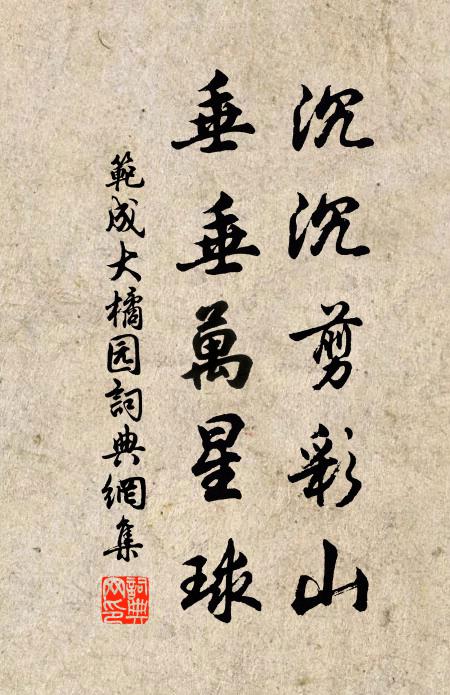 沉沉剪彩山
垂垂萬星球
範成大橘园詞典網集
詞典网印